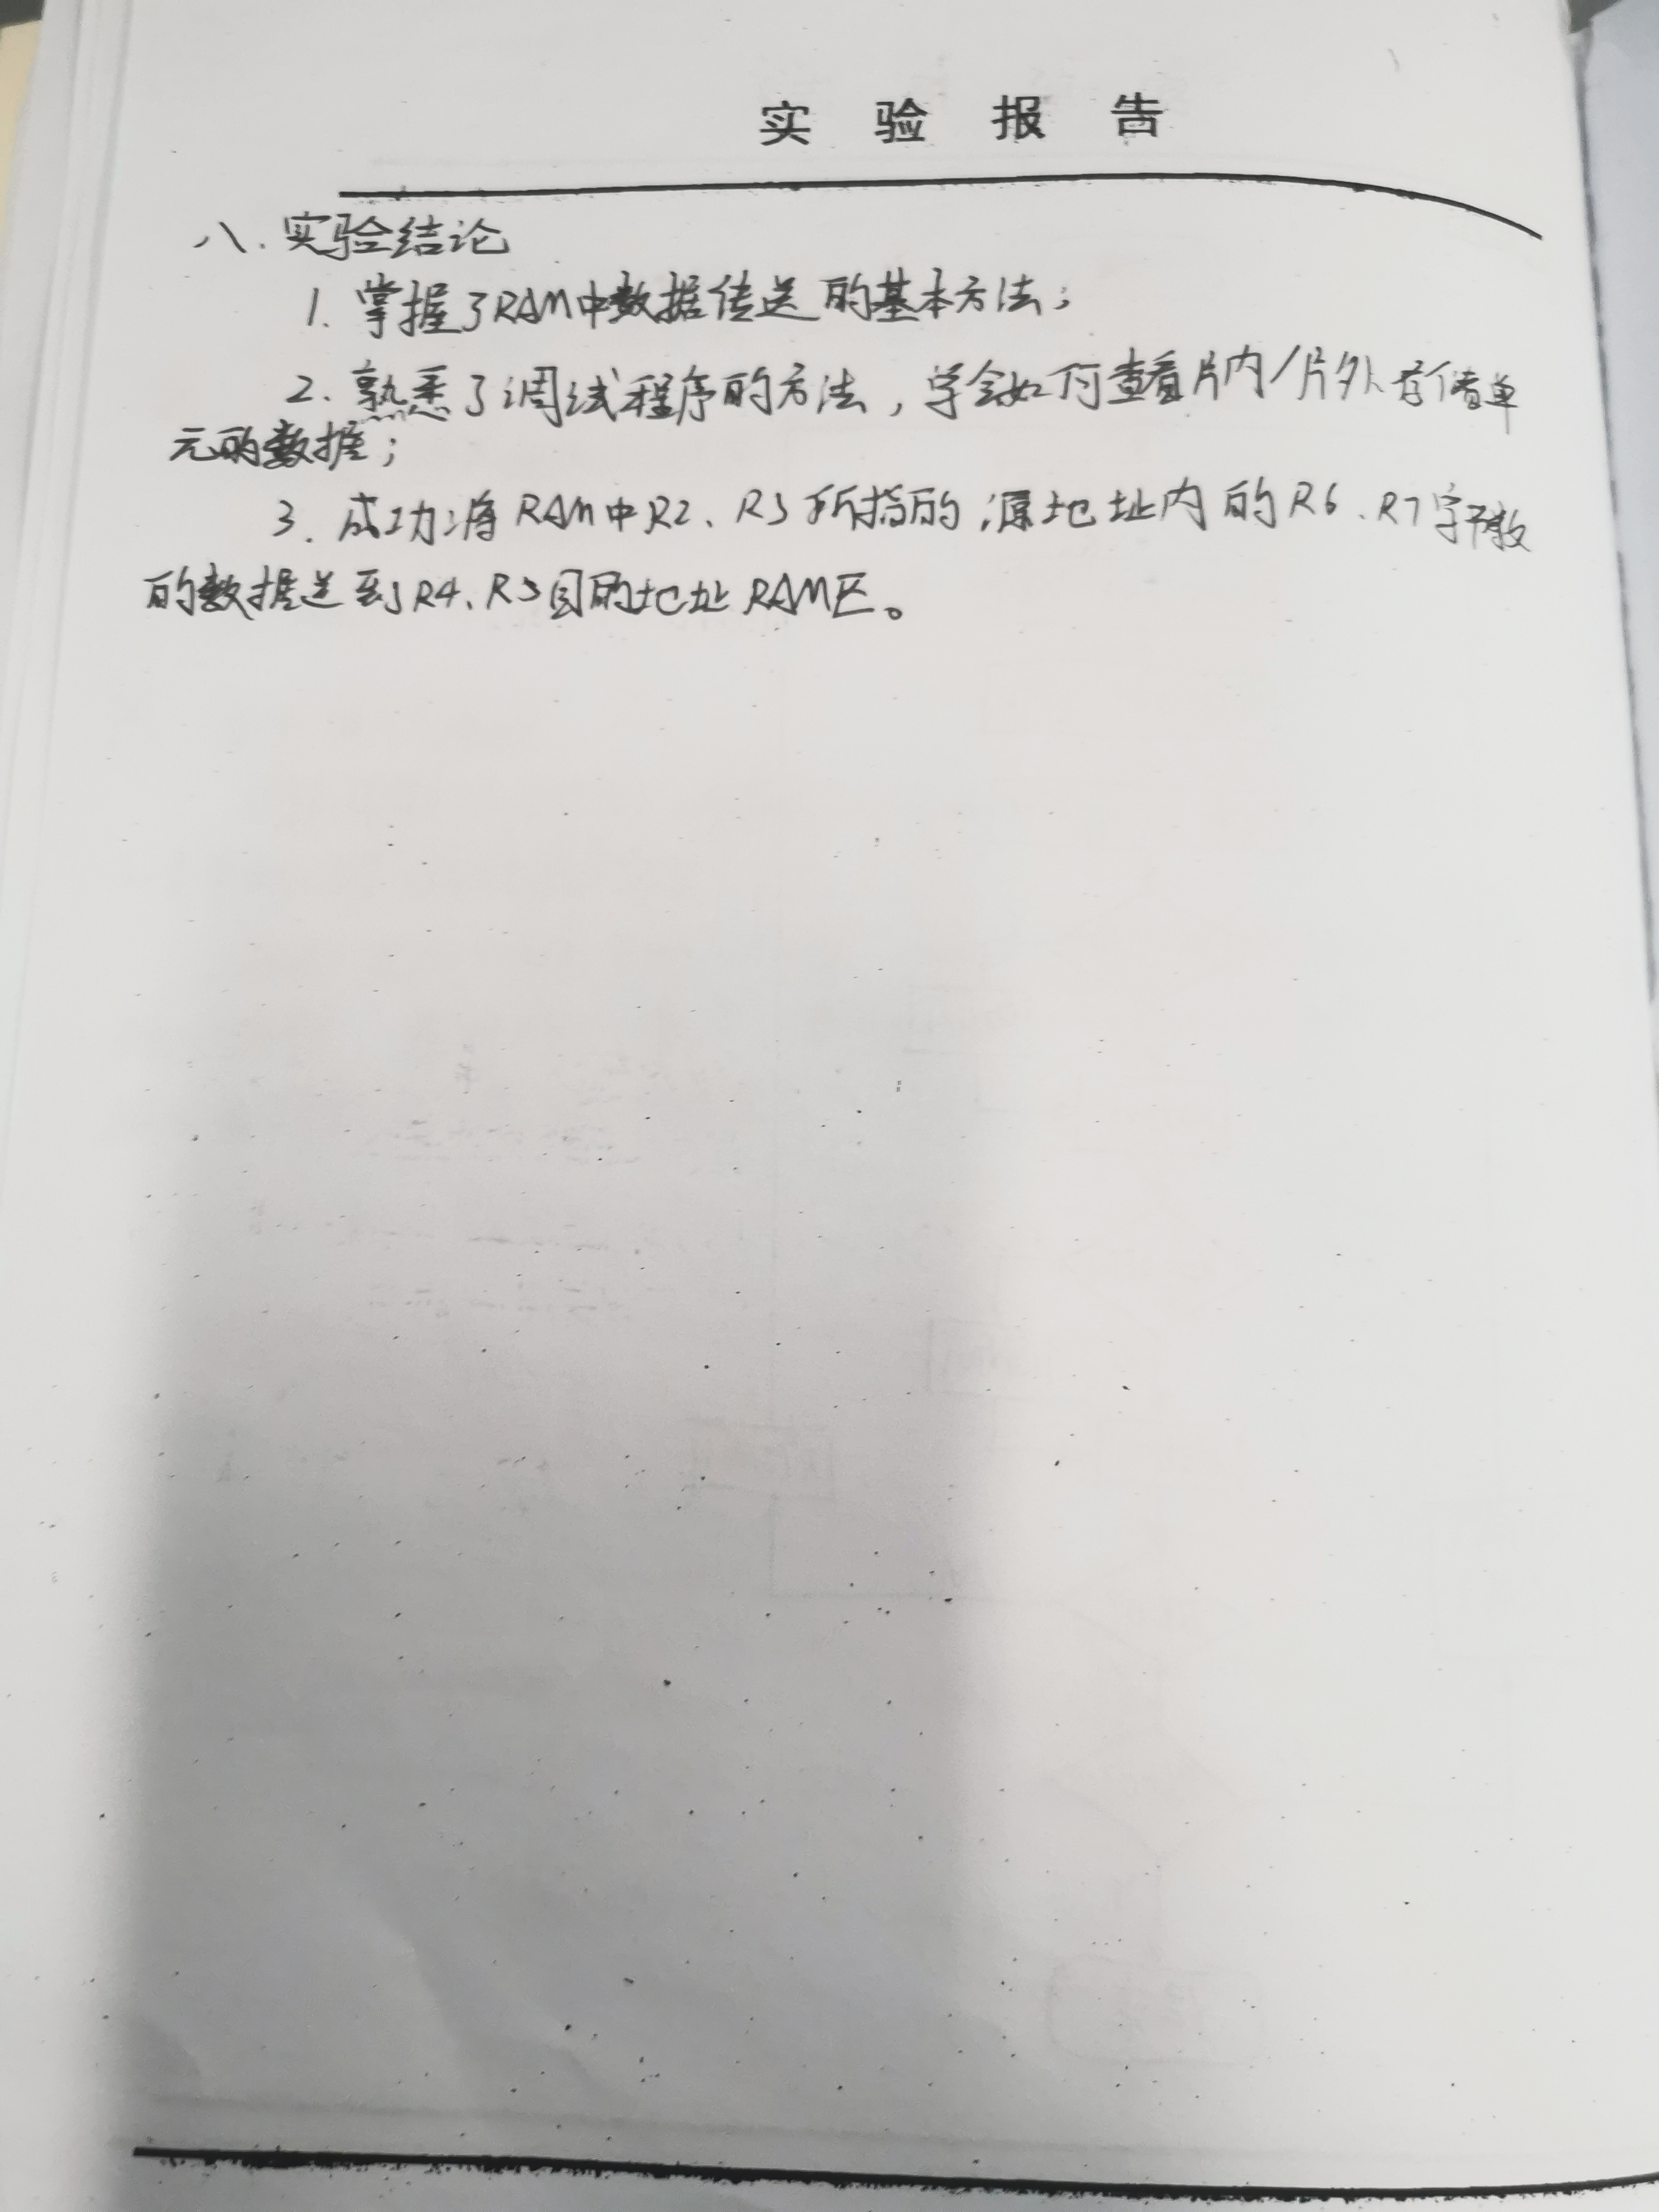 实验报告
八、实验结论
1. 掌握了RAM中数据传送的基本方法;
2. 熟悉了调试程序的方法,学会如何查看片内/片外存储单
元的数据;
3. 成功将RAM中R2、R3所指的源地址内的R6、R7字节数
的数据送到R4、R5目的地址RAM区。